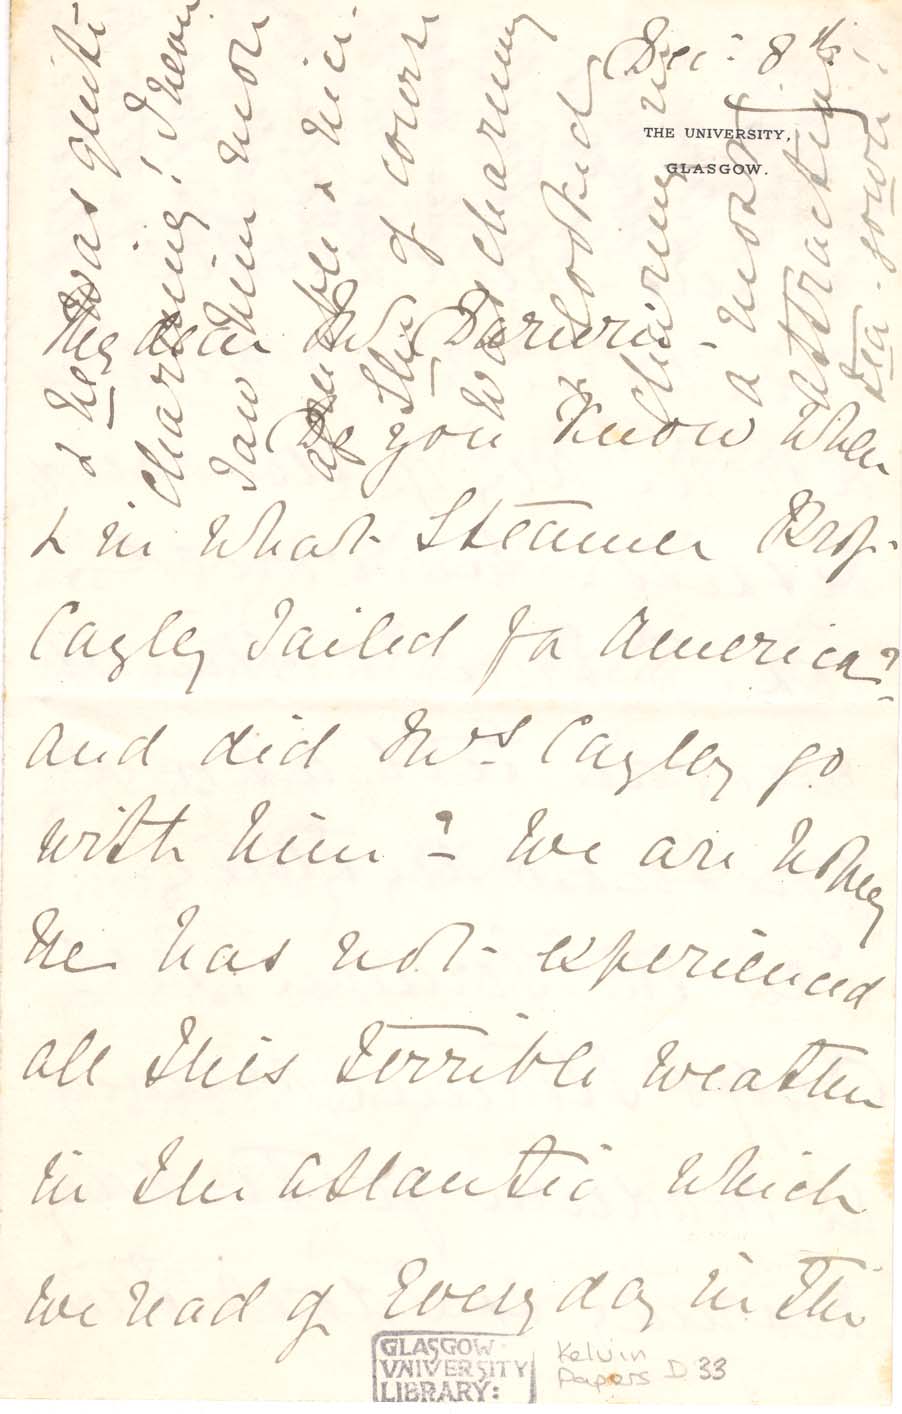 Dec: 8th
THE UNIVERSITY,
GLASGOW.
My dear Mr Darwin -
Do you know when
& in what Steamer Prof.
Cayley sailed for America?
and did Mrs Cayley go
with him? - We are hoping
he has not experienced
all this terrible weather
in the Atlantic which
we read of every day in the
& he was quite
charming! I never
saw him more
amiable & nice.
She of course
was charming
looked
charming in
a most
attractive
tea-gown!
GLASGOW
VNIVERSITY
LIBRARY:
Kelvin
Papers D 33